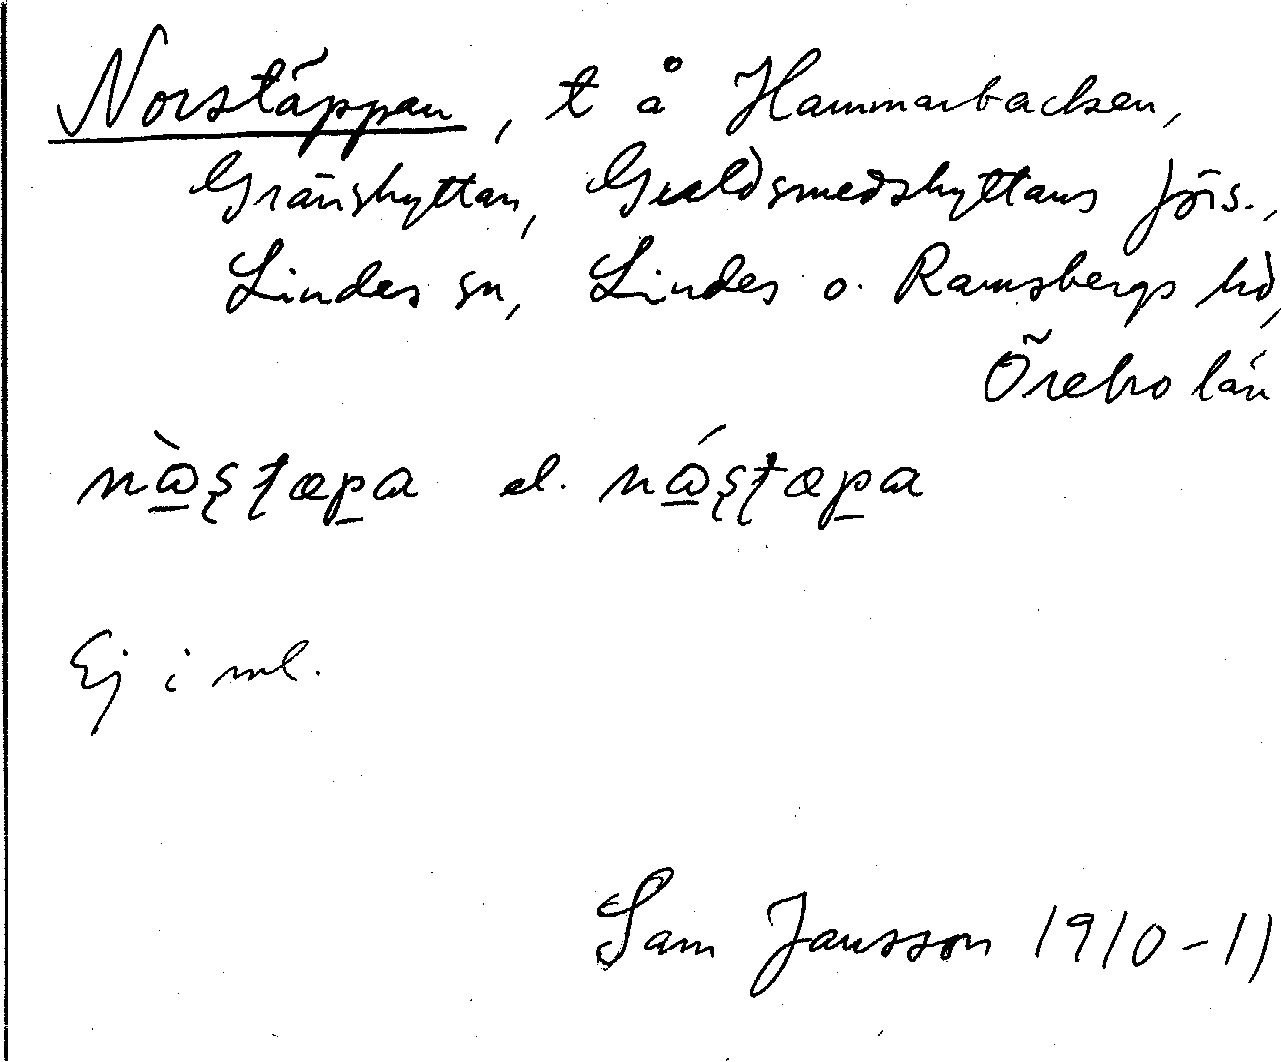 Norstäppan, t å Hammarbacken,
Gränshyttan, Guldsmedshyttans förs.,
Lindes sn, Lindes o. Ramsbergs hd,
Örebro län
nàş̱ṭæp̱a el. náş̱ṭæp̱a
Ej i ml.
Sam Jansson 1910-11